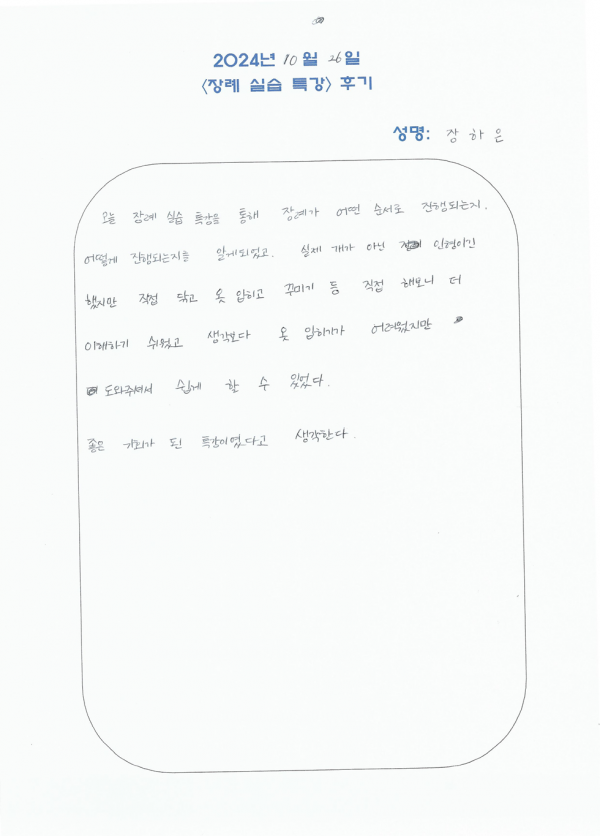 2024년 10월 26일
<장례 실습 특강> 후기
성명: 장하은
오늘 장례 실습 특강을 통해 장례가 어떤 순서로 진행되는지.
어떻게 진행되는지를 알게되었고. 실제 개가 아닌 인형이긴
했지만 직접 닦고 옷 입히고 꾸미기 등 직접 해보니 더
이해하기 쉬웠고 생각보다 옷 입히기가 어려웠지만
도와주셔서 쉽게 할 수 있었다.
좋은 기회가 된 특강이였다고 생각한다.